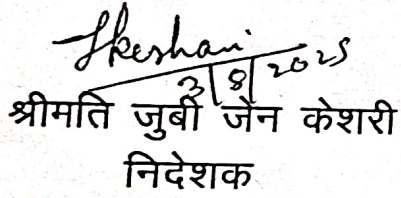 Jkeshari
3/8/2025
श्रीमति जुबी जेन केशरी
निदेशक